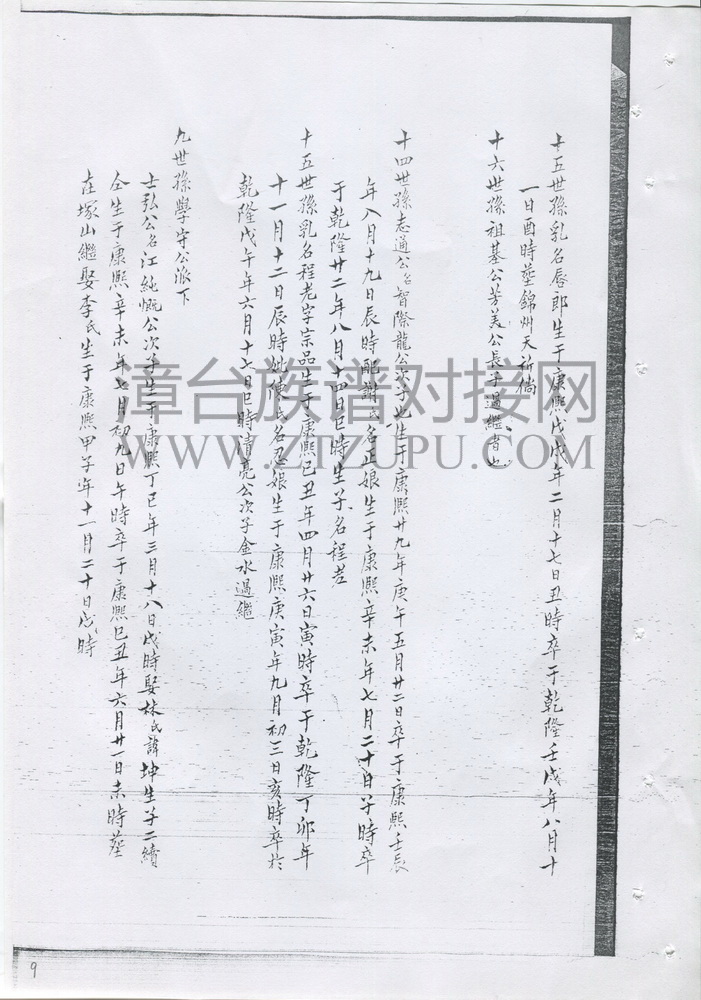 十五世孫乳名唇郎生于康熙戊戌年二月十七日丑時卒于乾隆壬戌年八月十
一日酉時塟錦州天祈徜
十六世孫祖基公芳美公長子過繼者也
十四世孫志通公名智際龍公次子也生于康熙廿九年庚午五月廿二日卒于康熙壬辰
年八月十九日辰時配謝氏名正娘生于康熙辛未年七月二十日子時卒
于乾隆廿二年八月十四日巳時生子名程老
十五世孫乳名程老字宗品生于康熙己丑年四月廿六日寅時卒于乾隆丁卯年
十一月十二日辰時妣陳氏名忍娘生于康熙庚寅年九月初三日亥時卒於
乾隆戊午年六月十七日巳時清亮公次子金水過繼
九世孫學守公派下
士弘公名江純慨公次子生于康熙丁巳年三月十八日戌時娶林氏諱坤生子二續
仝生于康熙辛未年七月初九日午時卒于康熙己丑年六月廿一日未時塟
在塚山繼娶李氏生于康熙甲子年十一月二十日戌時
漳台族谱对接网
WWW.ZIZUPU.COM
9